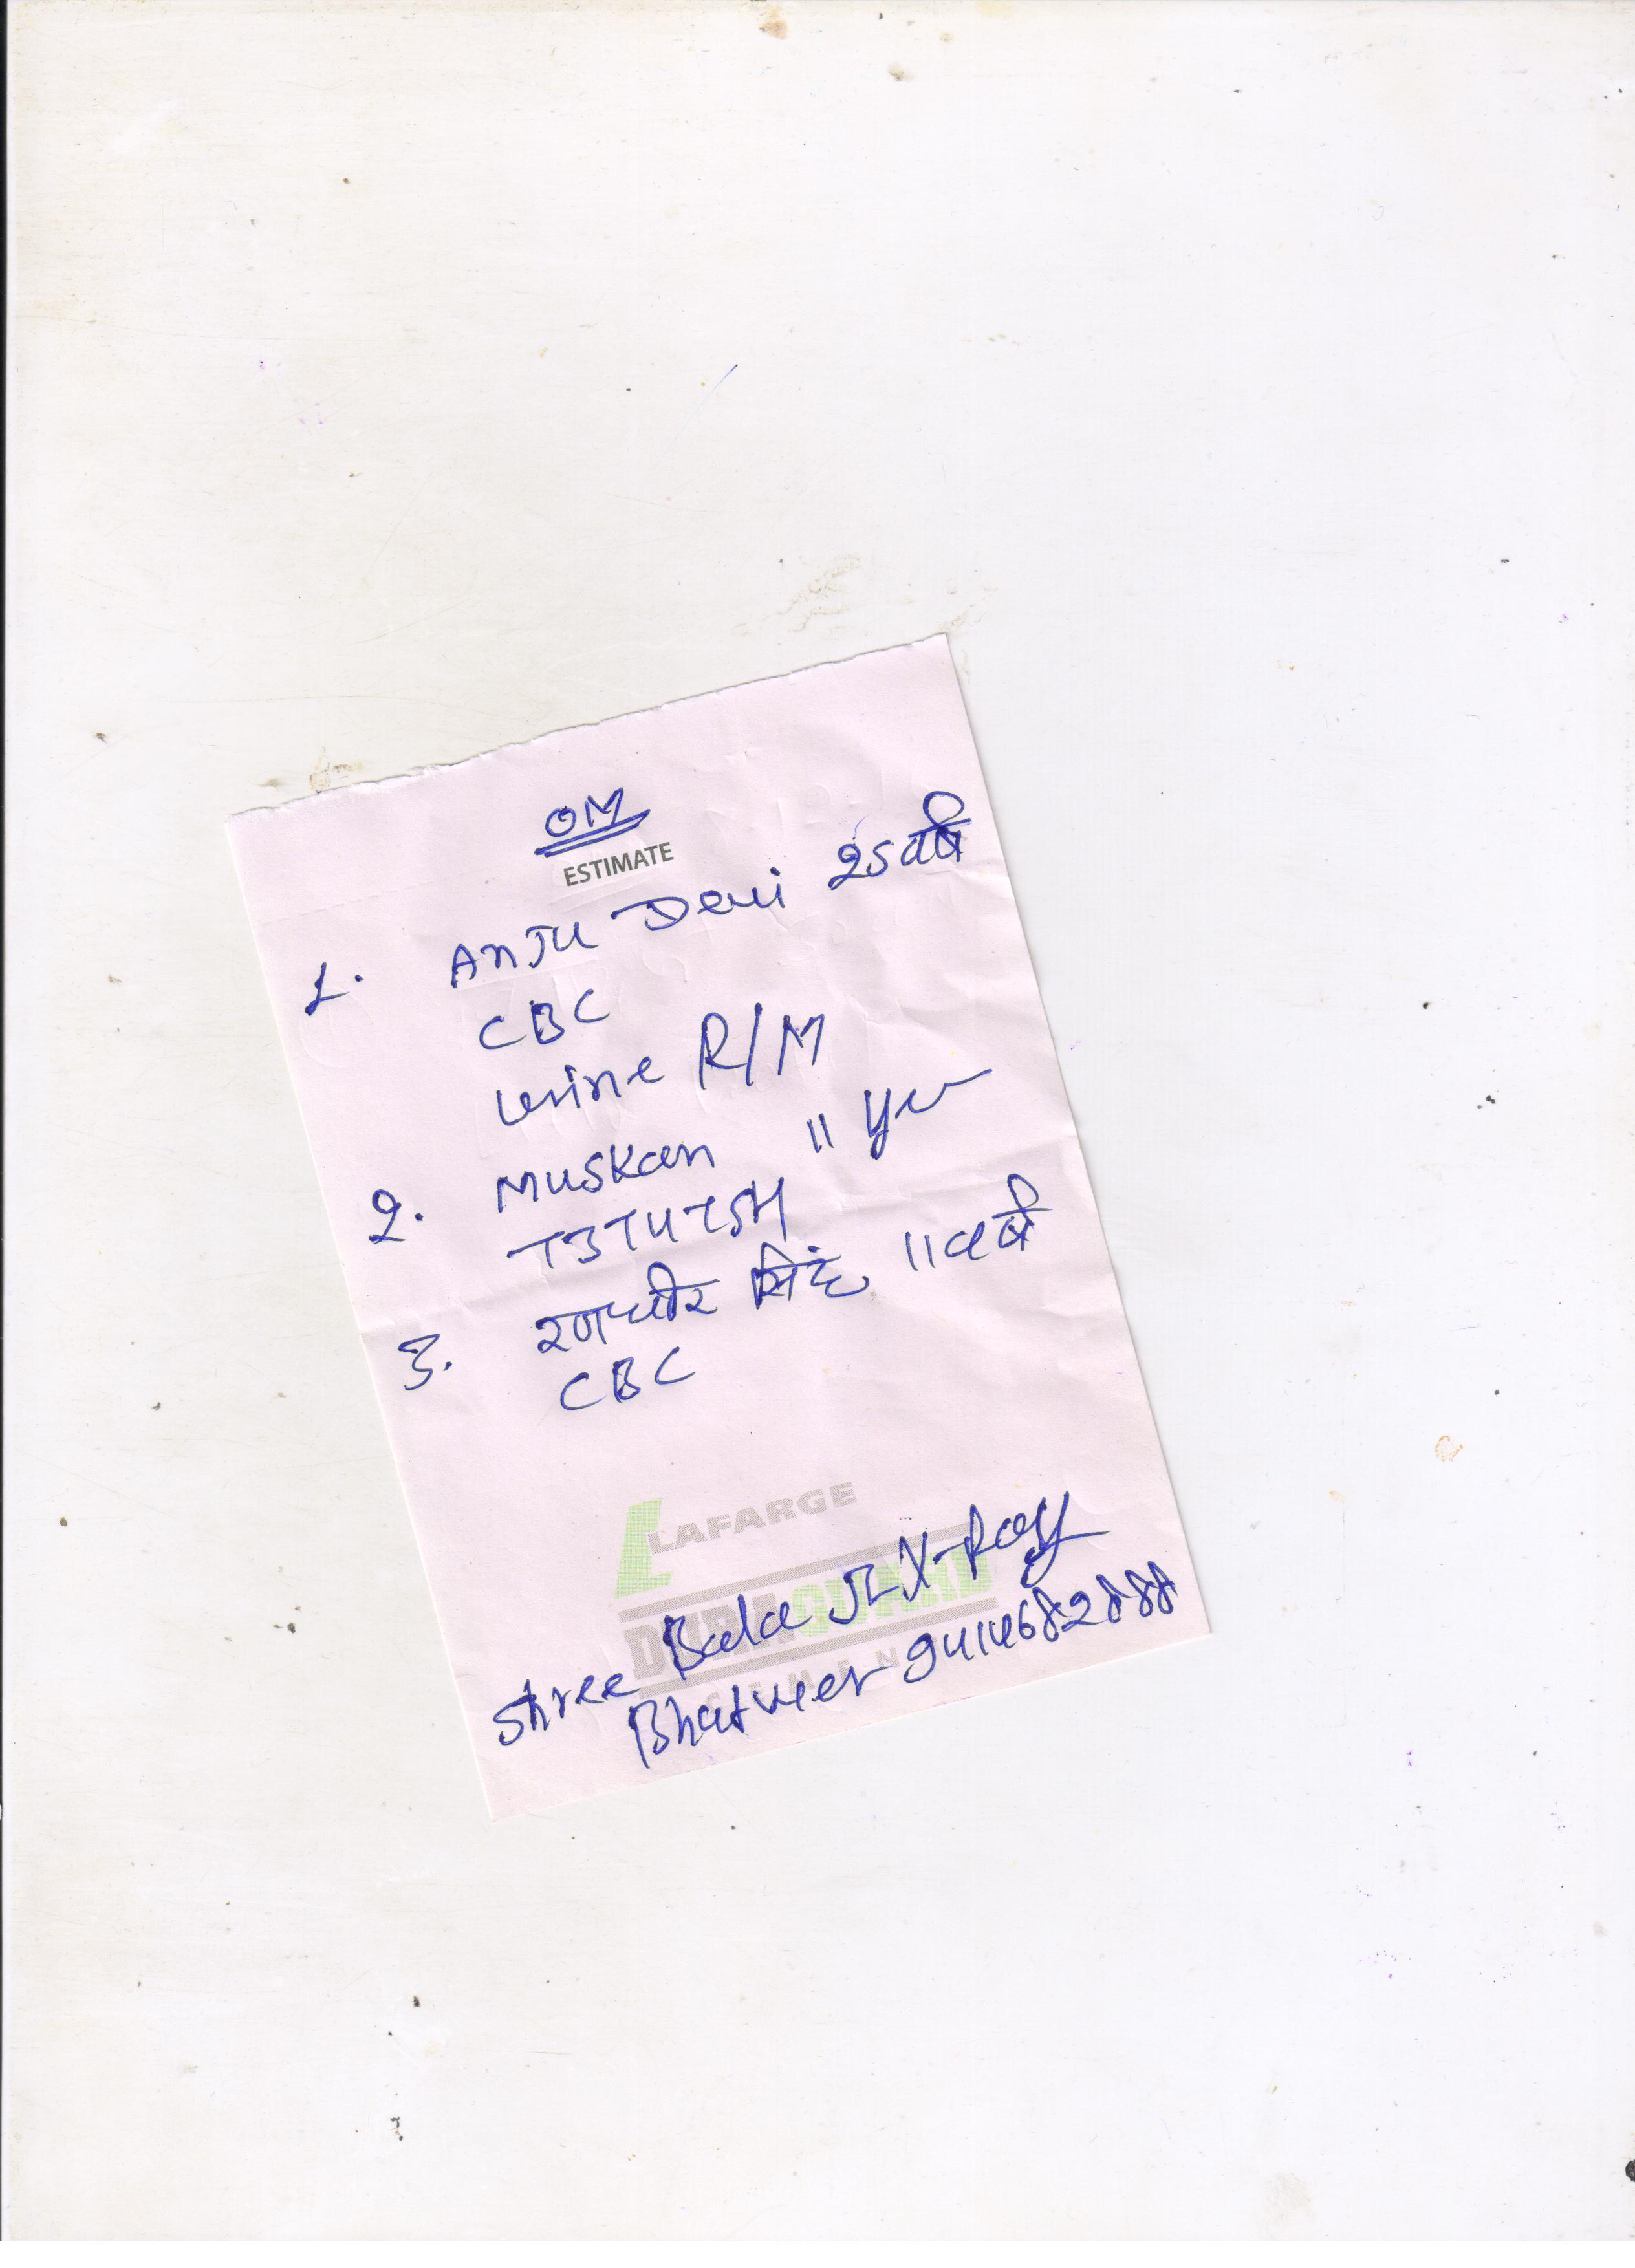 OM
ESTIMATE
1. ANJU Devi 25 वर्ष
CBC
Urine R/M
2. Muskan 11 Yer
T3T4TSH
3. रणधीर सिंह 11 वर्ष
CBC
LAFARGE
DURAGUARD
CEMENT
Shree Bala JI X-Ray
Bhatveer 9414682888